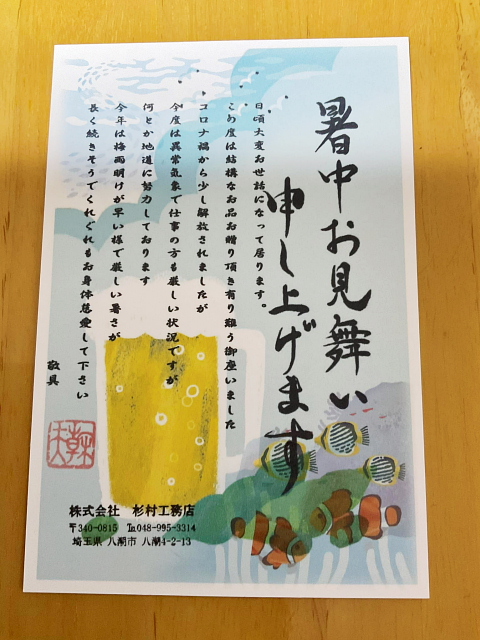 暑中お見舞い
申し上げます
日頃大変お世話になって居ります。
この度は結構なお品お贈り頂き有り難う御座いました
コロナ禍から少し解放されましたが
今度は異常気象で仕事の方も厳しい状況ですが
何とか地道に努力しております
今年は梅雨明けが早い様で厳しい暑さが
長く続きそうでくれぐれもお身体慈愛して下さい
敬具
株式会社 杉村工務店
〒340-0815 ℡048-995-3314
埼玉県 八潮市 八潮4-2-13